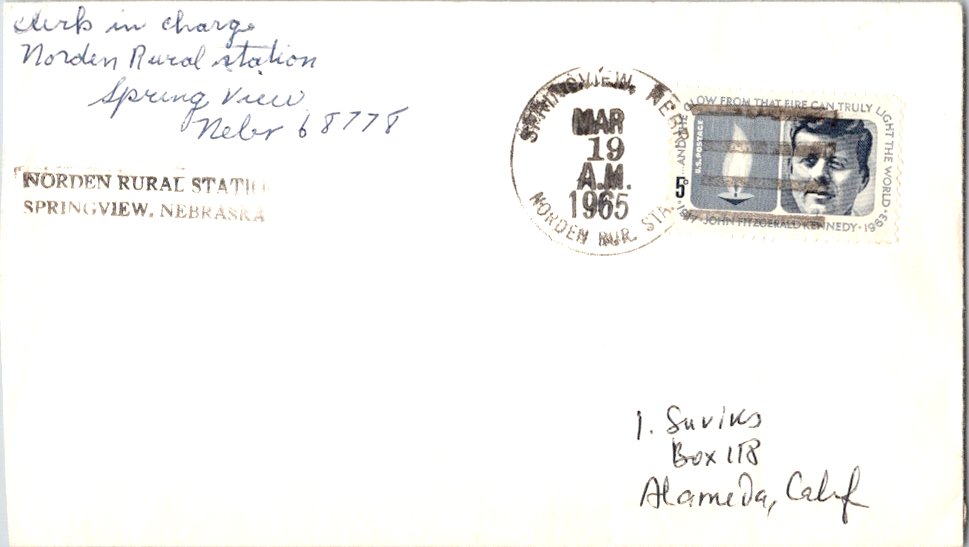 Clerk in charge
Norden Rural station
Spring View
Nebr 68778
NORDEN RURAL STATIO
SPRINGVIEW, NEBRASKA
SPRINGVIEW, NEBR.
MAR
19
A.M.
1965
NORDEN RUR. STA.
...AND THE GLOW FROM THAT FIRE CAN TRULY LIGHT THE WORLD
U.S. POSTAGE
5¢
1917 · JOHN FITZGERALD KENNEDY · 1963
I. Suviks
Box 118
Alameda, Calif